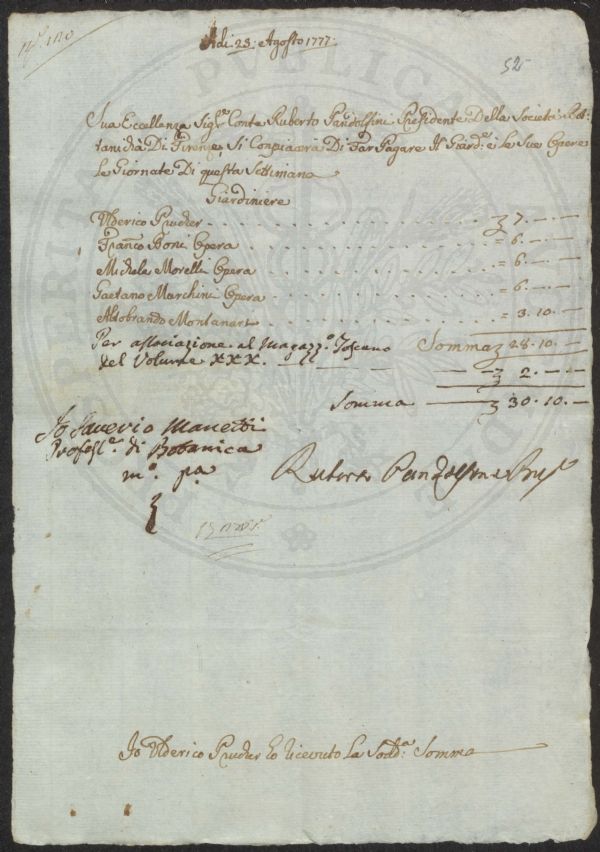 Adi 23: Agosto 1777:
52
Sua Eccellenza Sig.re Conte Ruberto Pandolfini Presidente Della Società Bot=
tanicha Di Firenze, Si Conpiacerà Di Far Pagare Al Giard.e e le Sue Opere
le Giornate Di questa Settimana
Giardiniere
Ulderico Prucher . . . 7. — . —
Franc.o Boni Opera . . . = 6. — . —
Michele Morelli Opera . . . = 6. — . —
Gaetano Marchini Opera . . . = 6. — . —
Aldobrando Montanari . . . = 3. 10. —
Per associazione al Magazz.o Toscano Somma 28. 10. —
del Volume XXX. — 2. — . —
Somma — 30. 10. —
Io Saverio Manetti
Profess.e di Botanica
m.o p.a
Ruberto Pandolfini Pres.e
Io Ulderico Prucher ho ricevuto La Sod.a Somma